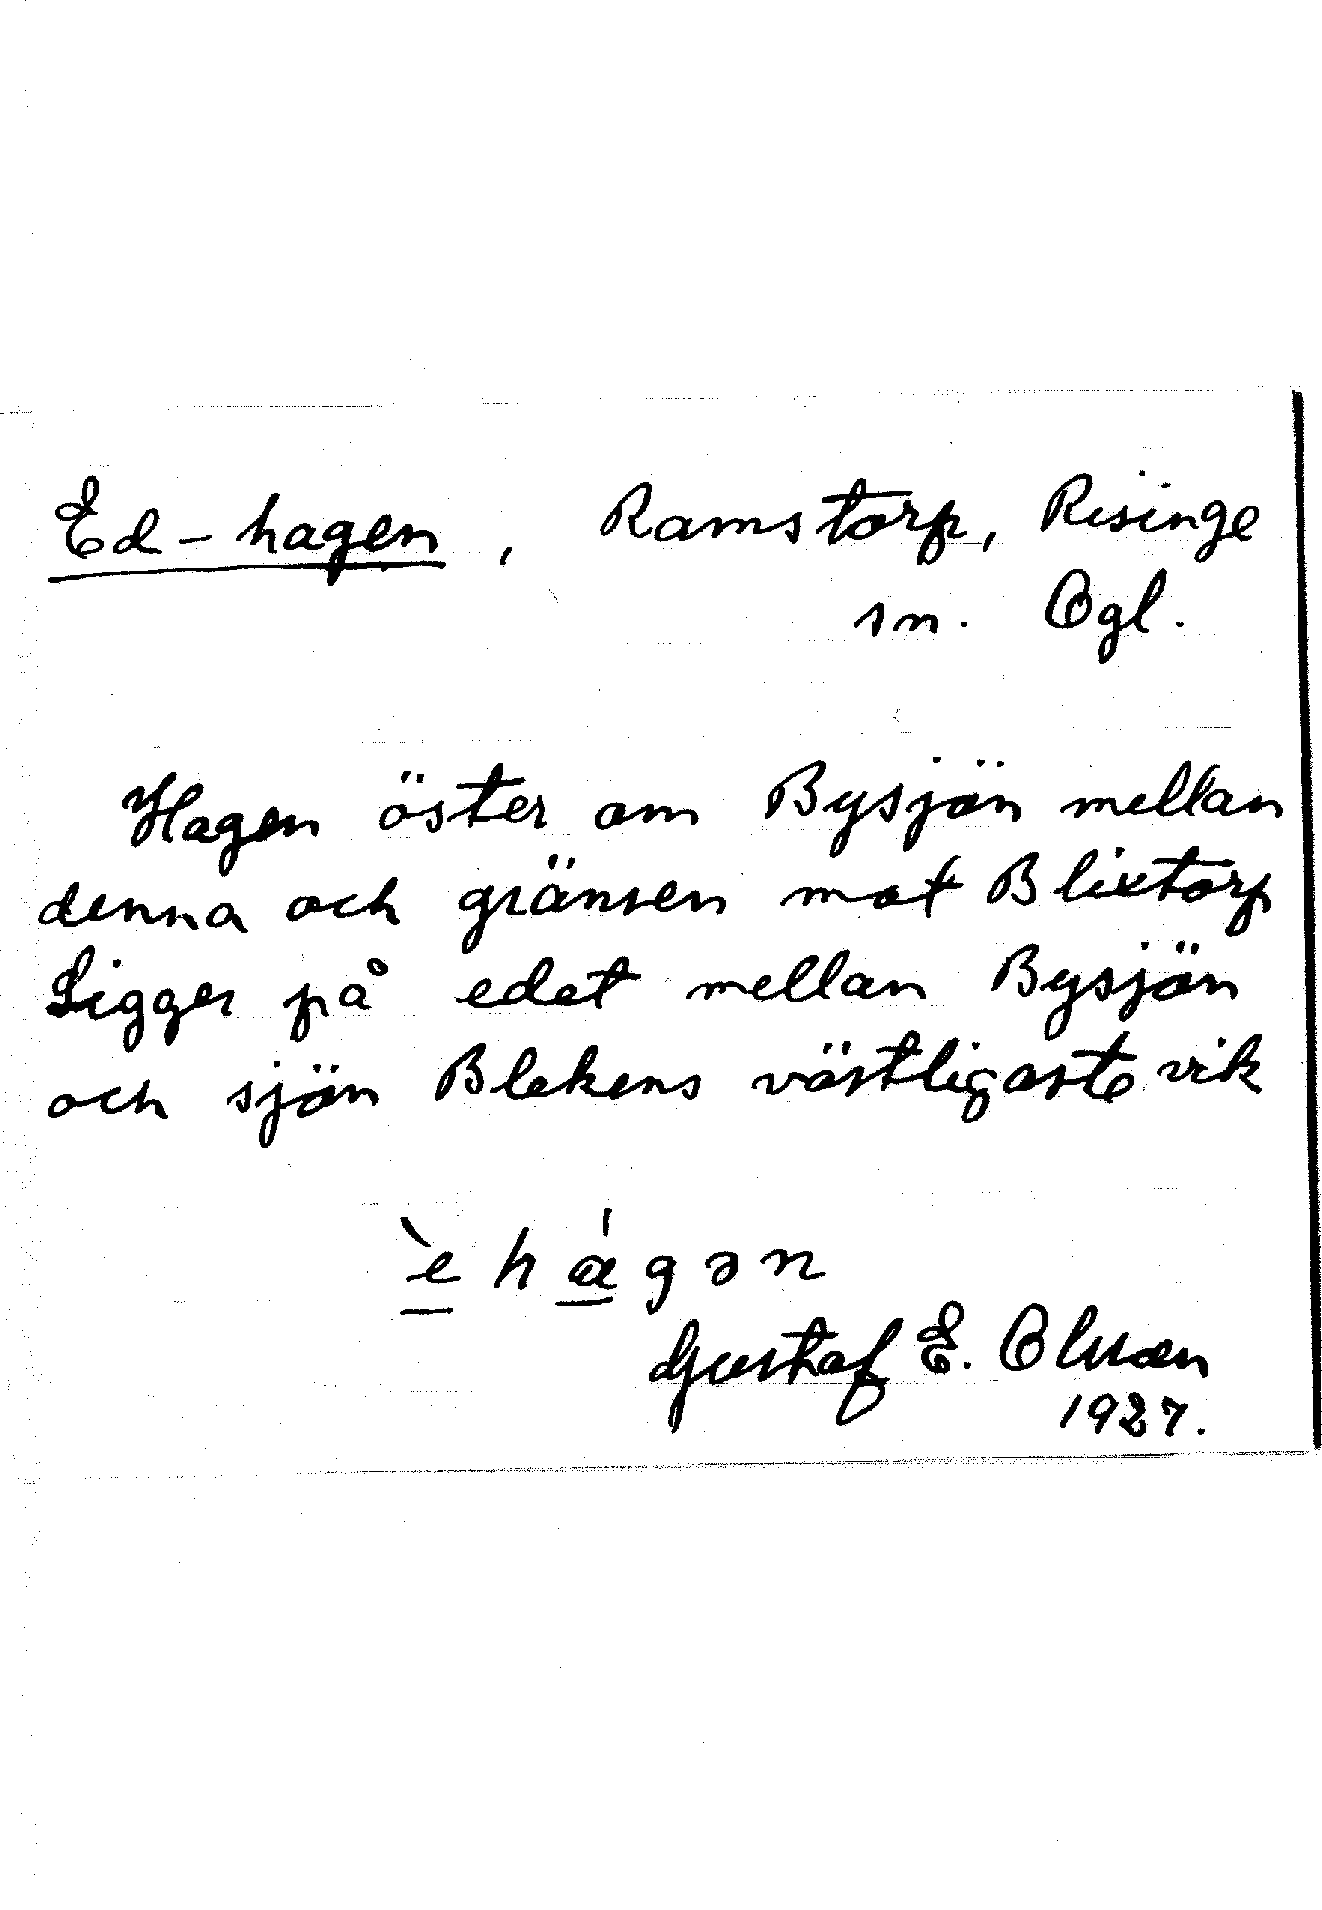 Ed-hagen, Ramstorp, Risinge
sn. Ögl.
Hagen öster om Bysjön mellan
denna och gränsen mot Blixtorp
Ligger på edet mellan Bysjön
och sjön Blekens västligaste vik
`e h á g ə n
Gustaf E. Olsson
1927.